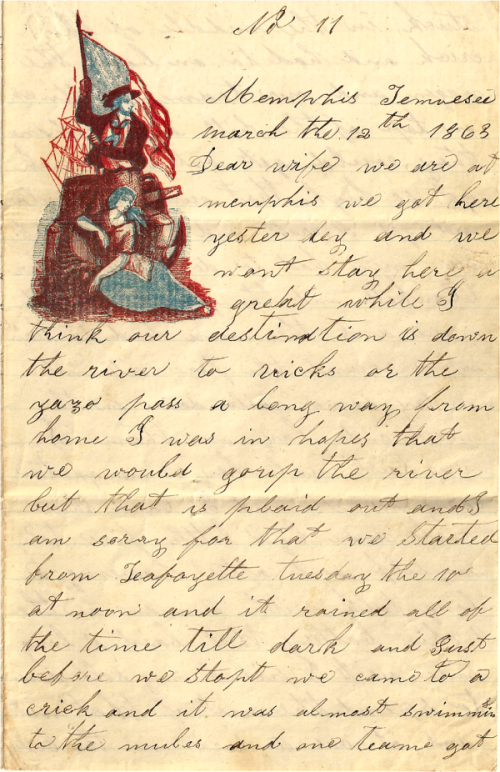 No 11
Memphis Tennesee
march the 12th 1863
Dear wife we are at
memphis we got here
yester dey and we
wont stay here a
great while I
think our destination is down
the river to vicks or the
yazo pass a long way from
home I was in hopes that
we would go up the river
but that is plaid out and I
am sorry for that we started
from Leafoyette tuesday the 10
at noon and it rained all of
the time till dark and Just
before we stopt we came to a
crick and it was almost swimmin
to the mules and one teame got